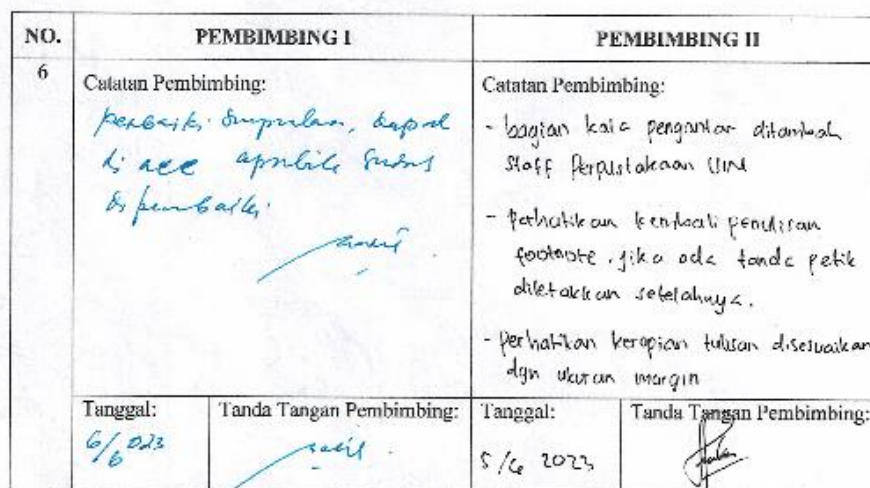 NO.
PEMBIMBING I
PEMBIMBING II
6
Catatan Pembimbing:
perbaiki simpulan, dapat
di acc apabila sudah
di perbaiki.
Catatan Pembimbing:
- bagian kata pengantar ditambah
staff Perpustakaan UIN
- Perhatikan kembali penulisan
footnote, jika ada tanda petik
diletakkan setelahnya.
- perhatikan kerapian tulisan disesuaikan
dgn ukuran margin
Tanggal:
Tanda Tangan Pembimbing:
Tanggal:
Tanda Tangan Pembimbing:
6/6 023
5/6 2023